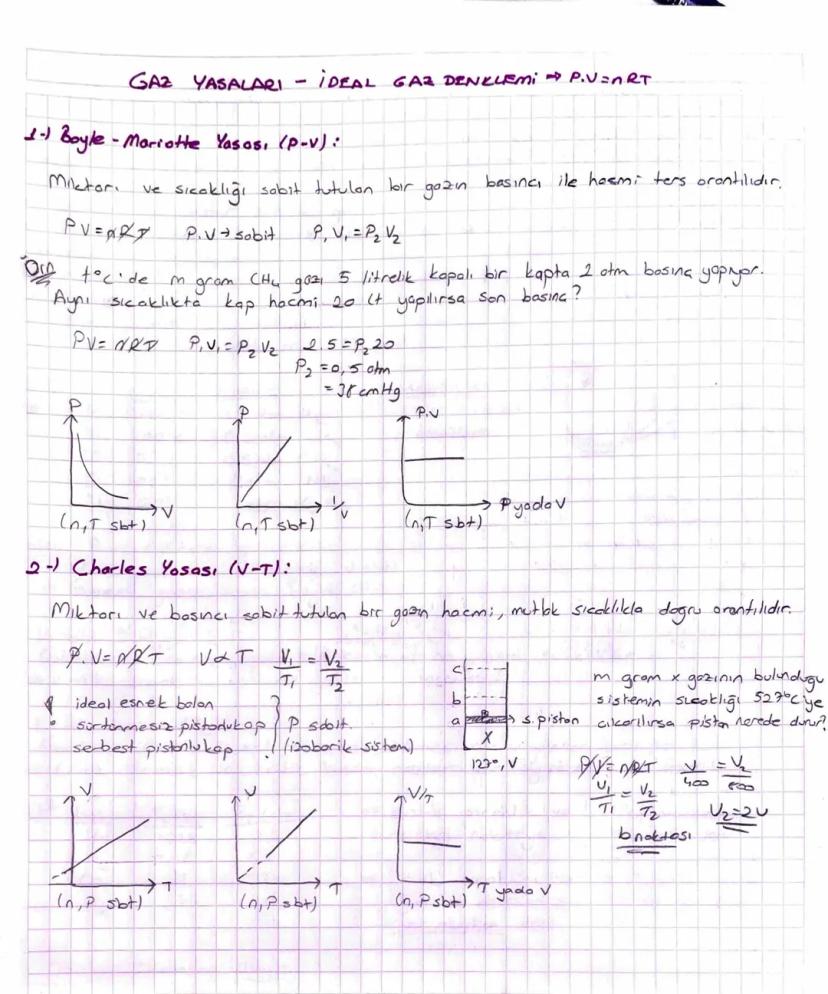 GAZ YASALARI – İDEAL GAZ DENKLEMİ → P.V=nRT
1-) Boyle - Mariotte Yasası (P-V):
Miktarı ve sıcaklığı sabit tutulan bir gazın basıncı ile hacmi ters orantılıdır.
PV=nRT P.V→sabit P₁V₁=P₂V₂
Örn t°C'de m gram CH₄ gazı 5 litrelik kapalı bir kapta 2 atm basınç yapıyor.
Aynı sıcaklıkta kap hacmi 20 lt yapılırsa son basınç?
PV=nRT P₁V₁=P₂V₂ 2.5=P₂20
P₂=0,5 atm
=38 cmHg
P P P.V
V 1/V P yada V
(n,T sbt) (n,T sbt) (n,T sbt)
2-) Charles Yasası (V-T):
Miktarı ve basıncı sabit tutulan bir gazın hacmi, mutlak sıcaklıkla doğru orantılıdır.
P.V=nRT V∝T V₁/T₁ = V₂/T₂
! ideal esnek balon
sürtünmesiz pistonlu kap
serbest pistonlu kap
P sabit.
(izobarik sistem)
c
b
a s.piston
X
127°, V
m gram x gazının bulunduğu
sistemin sıcaklığı 527°C'ye
çıkarılırsa piston nerede durur?
PV=nRT V/400 = V₂/800
V₁/T₁ = V₂/T₂ V₂=2V
b noktası
V V V/T
T T T yada V
(n,P sbt) (n,P sbt) (n,P sbt)